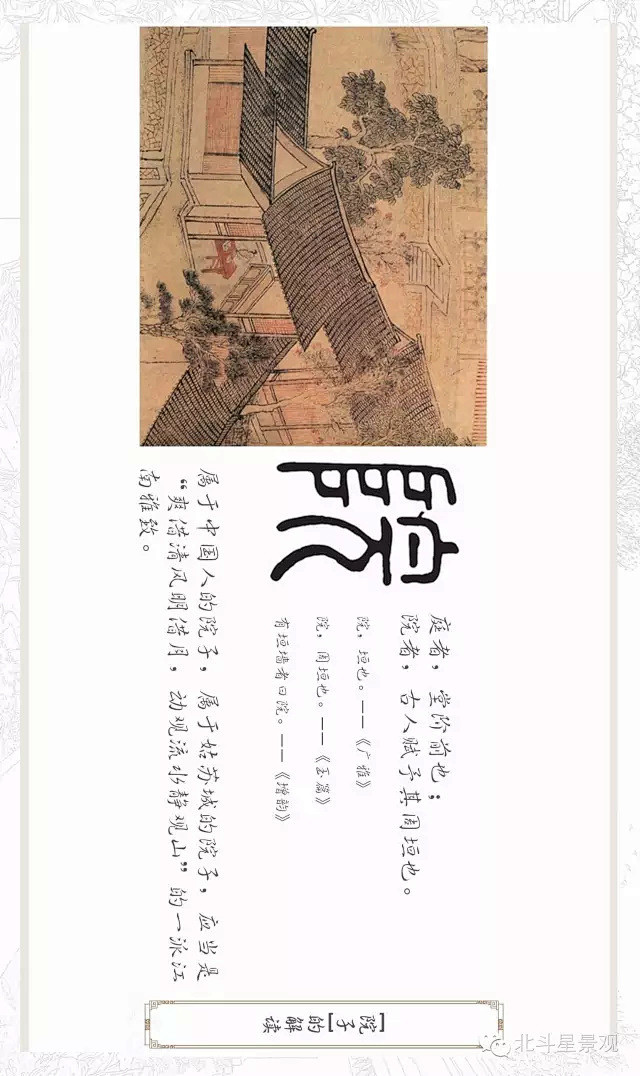 [院子]的解读
院
庭者，堂阶前也；
院者，古人赋予其周垣也。
院，垣也。——《广雅》
院，周垣也。——《玉篇》
有垣墙者曰院。——《增韵》
属于中国人的院子，属于姑苏城的院子，应当是
“爽借清风明借月，动观流水静观山”的一派江
南雅致。
北斗星景观